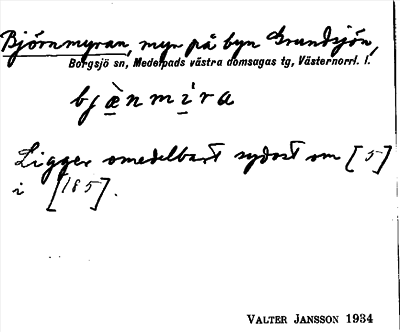 Björnmyran, myr på byn Grundsjön,
Borgsjö sn, Medelpads västra domsagas tg, Västernorrl. l.
bjæ̀nmìra
Ligger omedelbart sydost om [5]
i [185].
VALTER JANSSON 1934